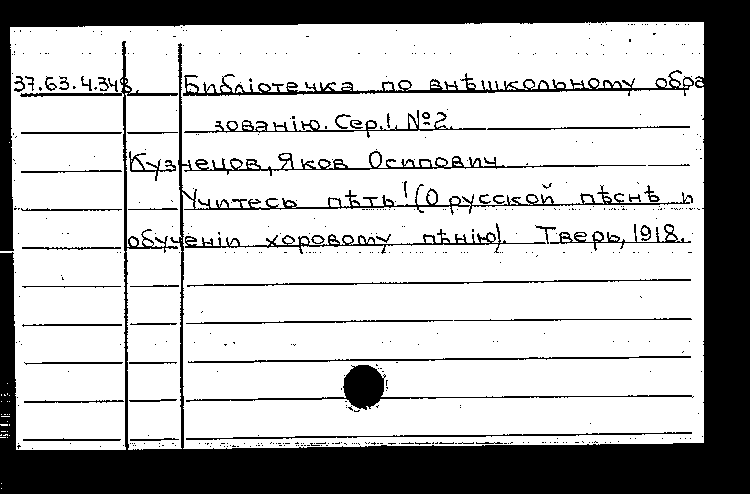 37.63.4.348. Библіотечка по внѣшкольному обра
зованію. Сер.I. №2.
Кузнецов, Яков Осипович
Учитесь пѣть! (О русской пѣснѣ и
обученіи хоровому пѣнію). Тверь, 1918.